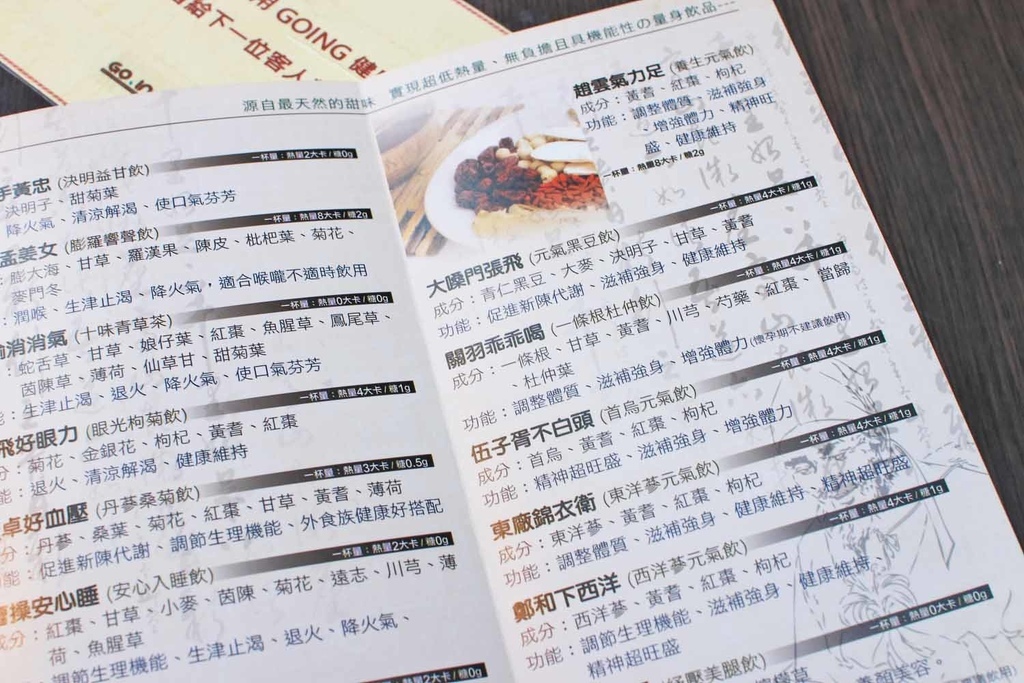 用 GOING 健
給下一位客人
GO.in
源自最天然的甜味
一杯量：熱量2大卡/糖0g
手黃忠 (決明益甘飲)
決明子、甜菊葉
降火氣、清涼解渴、使口氣芬芳
一杯量：熱量8大卡/糖2g
孟姜女 (膨羅響聲飲)
：膨大海、甘草、羅漢果、陳皮、枇杷葉、菊花、
麥門冬
：潤喉、生津止渴、降火氣，適合喉嚨不適時飲用
一杯量：熱量0大卡/糖0g
消消氣 (十味青草茶)
：蛇舌草、甘草、娘仔葉、紅棗、魚腥草、鳳尾草、
茵陳草、薄荷、仙草甘、甜菊葉
：生津止渴、退火、降火氣、使口氣芬芳
一杯量：熱量4大卡/糖1g
飛好眼力 (眼光枸菊飲)
：菊花、金銀花、枸杞、黃耆、紅棗
：退火、清涼解渴、健康維持
一杯量：熱量3大卡/糖0.5g
卓好血壓 (丹蔘桑菊飲)
分：丹蔘、桑葉、菊花、紅棗、甘草、黃耆、薄荷
能：促進新陳代謝、調節生理機能、外食族健康好搭配
一杯量：熱量2大卡/糖0g
操安心睡 (安心入睡飲)
成分：紅棗、甘草、小麥、茵陳、菊花、遠志、川芎、薄
荷、魚腥草
調節生理機能、生津止渴、退火、降火氣、
一杯量：熱量2大卡/糖0g
實現超低熱量、無負擔且具機能性の量身飲品---
趙雲氣力足 (養生元氣飲)
成分：黃耆、紅棗、枸杞
功能：調整體質、滋補強身
、增強體力、精神旺
盛、健康維持
一杯量：熱量8大卡/糖2g
一杯量：熱量4大卡/糖1g
大嗓門張飛 (元氣黑豆飲)
成分：青仁黑豆、大麥、決明子、甘草、黃耆
功能：促進新陳代謝、滋補強身、健康維持
一杯量：熱量4大卡/糖1g
關羽乖乖喝 (一條根杜仲飲)
成分：一條根、甘草、黃耆、川芎、芍藥、紅棗、當歸
、杜仲葉
功能：調整體質、滋補強身、增強體力(懷孕期不建議飲用)
一杯量：熱量4大卡/糖1g
伍子胥不白頭 (首烏元氣飲)
成分：首烏、黃耆、紅棗、枸杞
功能：精神超旺盛、滋補強身、增強體力
一杯量：熱量4大卡/糖1g
東廠錦衣衛 (東洋蔘元氣飲)
成分：東洋蔘、黃耆、紅棗、枸杞
功能：調整體質、滋補強身、健康維持、精神超旺盛
一杯量：熱量4大卡/糖1g
鄭和下西洋 (西洋蔘元氣飲)
成分：西洋蔘、黃耆、紅棗、枸杞
功能：調節生理機能、滋補強身、健康維持、
精神超旺盛
一杯量：熱量0大卡/糖0g
紓壓美腿飲)
養顏美容。